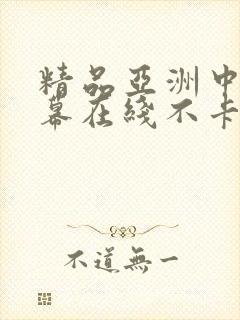 精品亞洲中
幕在綫不卡
不道無一